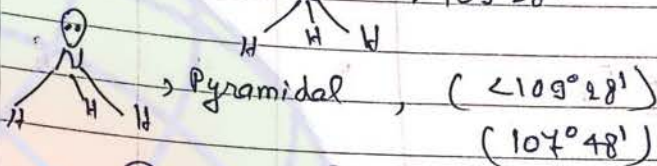 H H H
N
H H H , Pyramidal , ( <109°28')
(107°48')